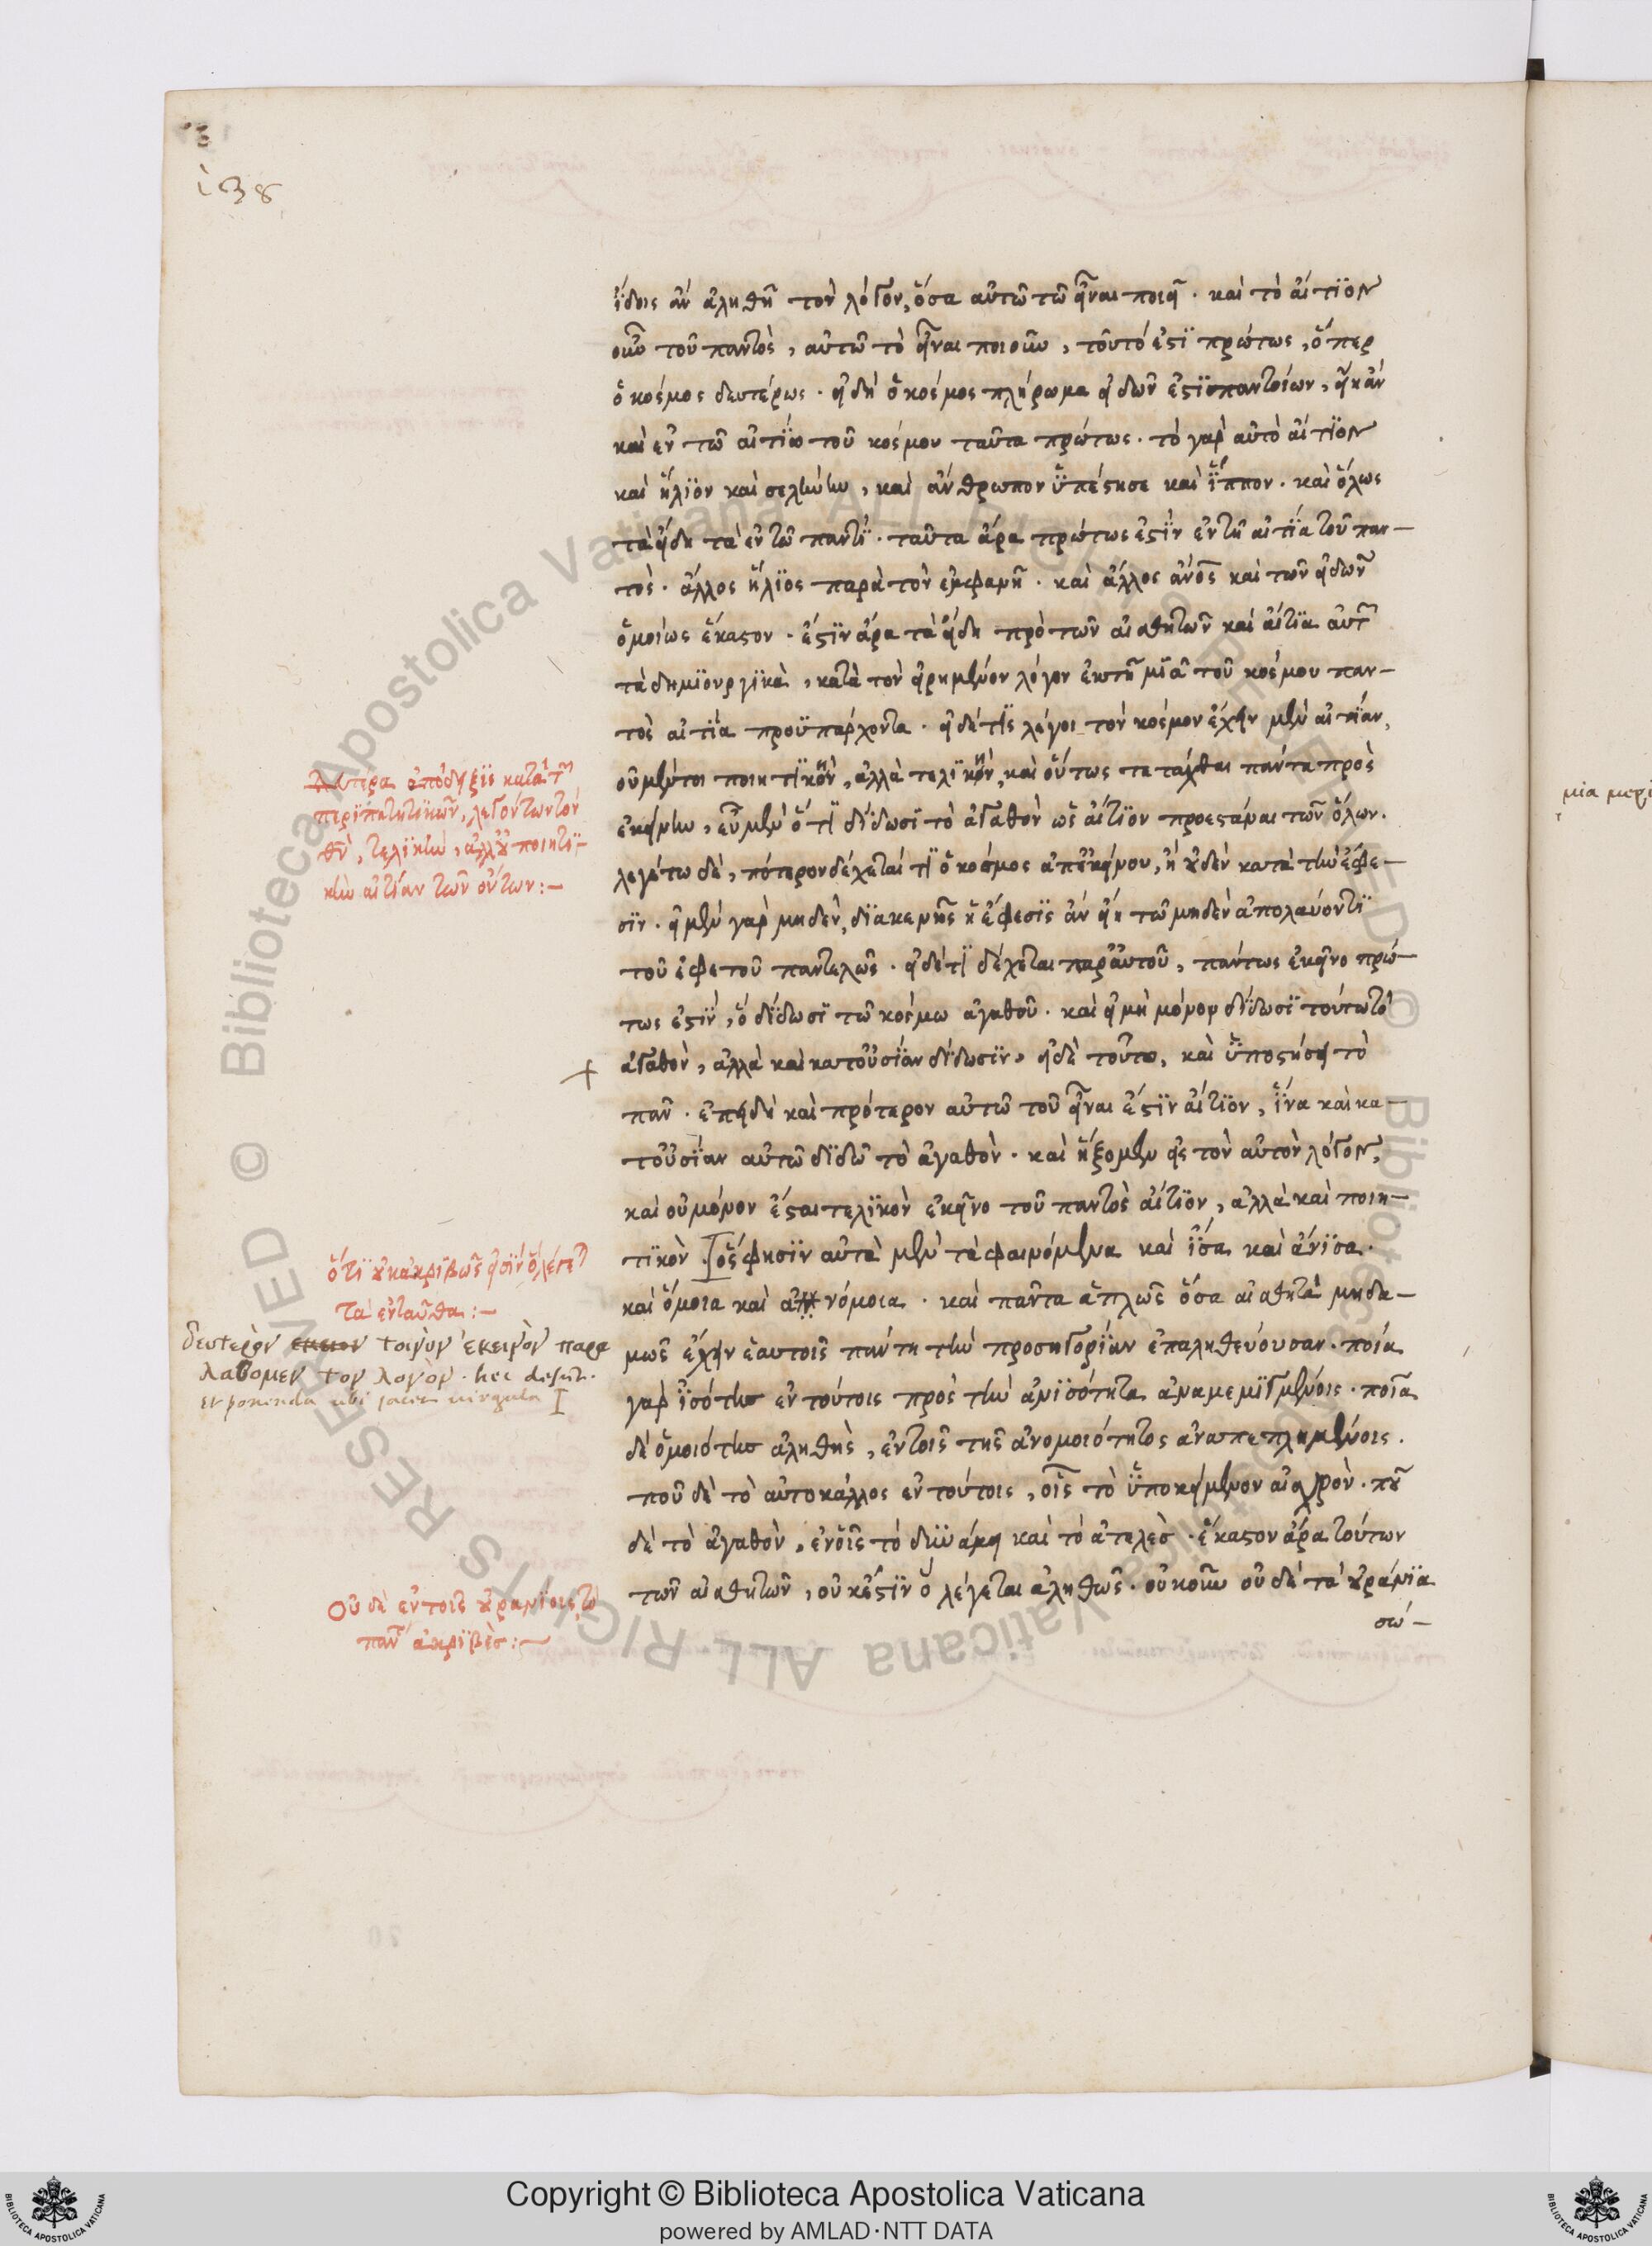 138
ἴδοις ἂν ἀληθῆ τὸν λόγον, ὅσα αὐτῶ τῶ εἶναι ποιεῖ · καὶ τὸ αἴτϊον
οὖν τοῦ παντὸς, αὐτῶ τὸ εἶναι ποιοῦν, τοῦτό ἐστϊ πρώτως, ὅπερ
ὁ κόσμος δευτέρως · εἰ δὴ ὁ κόσμος πλήρωμα εἰδῶν ἐστϊ παντοίων, εἴη ἂν
καὶ ἐν τῶ αἰτΐω τοῦ κόσμου ταῦτα πρώτως · τὸ γὰρ αὐτὸ αἴτϊον
καὶ ἥλϊον καὶ σελήνην, καὶ ἄνθρωπον ὑπέστησε καὶ ἵππον · καὶ ὅλως
τὰ εἴδη τὰ ἐν τῶ παντί · ταῦτα ἄρα πρώτως ἐστὶν ἐν τῆ αἰτΐα τοῦ παν—
τός · ἄλλος ἥλϊος παρὰ τὸν ἐμφανῆ · καὶ ἄλλος ἄνος καὶ τῶν εἰδῶν
ὁμοίως ἕκαστον · ἔστϊν ἄρα τὰ εἴδη πρὸ τῶν αἰσθητῶν καὶ αἴτϊα αὐτ
τὰ δημϊουργϊκὰ, κατὰ τὸν εἰρημένον λόγον ἐν τῆ μϊᾶ τοῦ κόσμου παν—
τὸς αἰτΐα προϋπάρχοντα · εἰ δέ τϊς λέγοι τὸν κόσμον ἔχειν μὲν αἰτΐαν,
οὐ μέντοι ποιητϊκὴν, ἀλλὰ τελϊκὴν, καὶ οὕτως τετάχθαι πάντα πρὸς
ἐκείνην, εὖ μὲν ὅτϊ δΐδωσϊ τὸ ἀγαθὸν ὡς αἴτϊον προεστάναι τῶν ὅλων.
λεγέτω δὲ, πότερον δέχεταί τϊ ὁ κόσμος ἀπ' ἐκείνου, ἢ οὐδὲν κατὰ τὴν ἔφε—
σϊν · εἰ μὲν γὰρ μηδὲν, διακενῆς ἡ ἔφεσϊς ἂν εἴη τῶ μηδὲν ἀπολαύοντϊ
τοῦ ἐφετοῦ παντελῶς · εἰ δέ τϊ δέχεται παρ' αὐτοῦ, πάντως ἐκεῖνο πρώ—
τως ἐστΐν, ὃ δΐδωσϊ τῶ κόσμω ἀγαθοῦ · καὶ εἰ μὴ μόνον δΐδωσϊ τούτω τὸ
ἀγαθὸν, ἀλλὰ καὶ κατ' οὐσΐαν δΐδωσϊν, εἰ δὲ τοῦτο, καὶ ὑποστήσει τὸ
πᾶν · ἐπειδὴ καὶ πρότερον αὐτῶ τοῦ εἶναι ἔστϊν αἴτϊον, ἵνα καὶ κα—
τ' οὐσΐαν αὐτῶ δϊδῶ τὸ ἀγαθὸν · καὶ ἥξομεν εἰς τὸν αὐτὸν λόγον,
καὶ οὐ μόνον ἔσται τελϊκὸν ἐκεῖνο τοῦ παντὸς αἴτϊον, ἀλλὰ καὶ ποιη—
τϊκὸν · ὅς φησϊν αὐτὰ μὲν τὰ φαινόμενα καὶ ἴσα καὶ ἄνϊσα.
καὶ ὅμοια καὶ ἀνόμοια · καὶ πάντα ἁπλῶς ὅσα αἰσθητὰ μηδα—
μῶς ἔχειν ἑαυτοῖς πάντη τὴν προσηγορΐαν ἐπαληθεύουσαν · ποία
γὰρ ἰσότης ἐν τούτοις πρὸς τὴν ἀνϊσότητα ἀναμεμϊγμένοις · ποΐα
δὲ ὁμοιότης ἀληθὴς, ἐν τοῖς τῆς ἀνομοιότητος ἀναπεπλημένοις.
ποῦ δὲ τὸ αὐτοκάλλος ἐν τούτοις, οἷς τὸ ὑποκείμενον αἰσχρὸν · ποῦ
δὲ τὸ ἀγαθὸν, ἐν οἷς τὸ δυνάμει καὶ τὸ ἀτελὲς · ἕκαστον ἄρα τούτων
τῶν αἰσθητῶν, οὐκ ἔστϊν ὃ λέγεται ἀληθῶς · οὐκοῦν οὐδὲ τὰ οὐράνϊα
σώ—
ἀπόδειξϊς κατὰ τ
περϊπατητϊκῶν, λεγόντων τὸν
θν, τελϊκὴν, ἀλλ' οὐ ποιητϊ—
κὴν αἰτίαν τῶν ὄντων :—
ὅτϊ οὐκ ἀκρϊβῶς εἰσΐν ὃ λέγετ
τὰ ἐνταῦθα :—
δευτερον τοινυν εκεινον παρα
λαβομεν τον λογον · hec desunt.
et ponenda ubi jacet virgula I
Οὐδὲ ἐν τοῖς οὐρανϊοις τὸ
πᾶν ἀκρϊβὲς :—
μία μερι
Copyright © Biblioteca Apostolica Vaticana
powered by AMLAD·NTT DATA